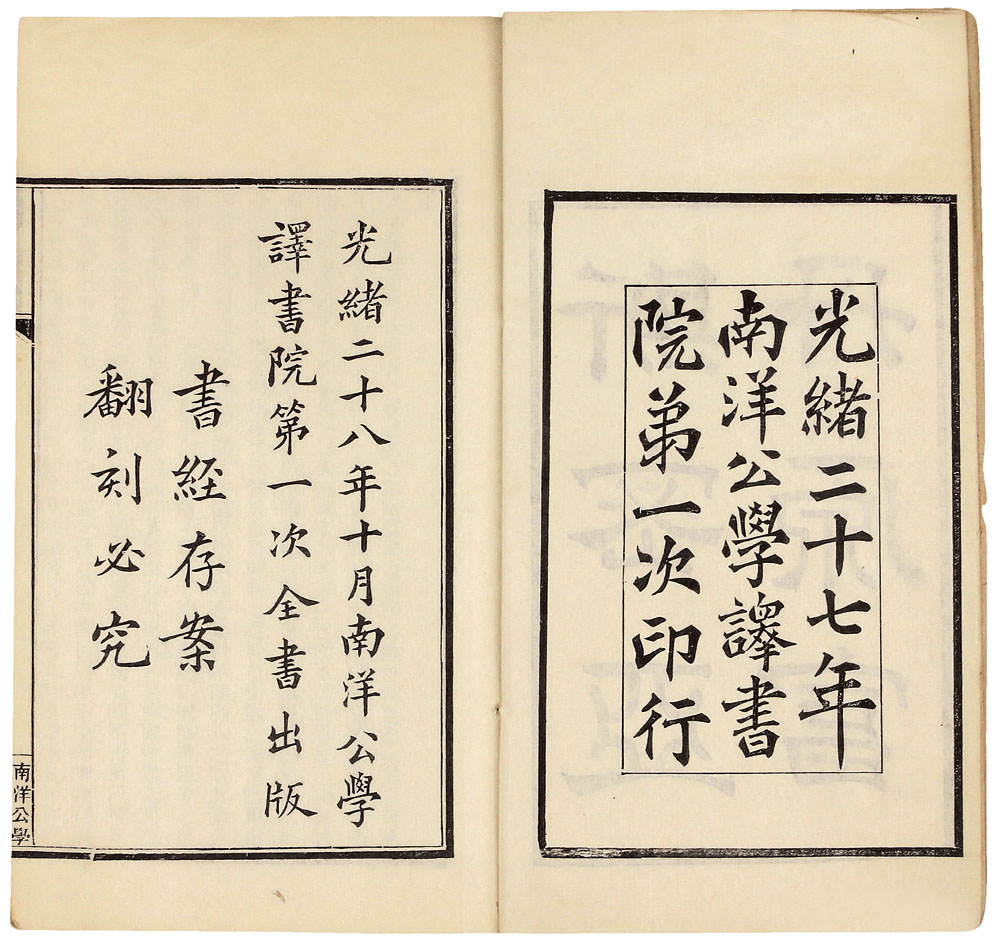 光緒二十七年
南洋公學譯書
院弟一次印行
光緒二十八年十月南洋公學
譯書院第一次全書出版
書經存案
翻刻必究
南洋公學